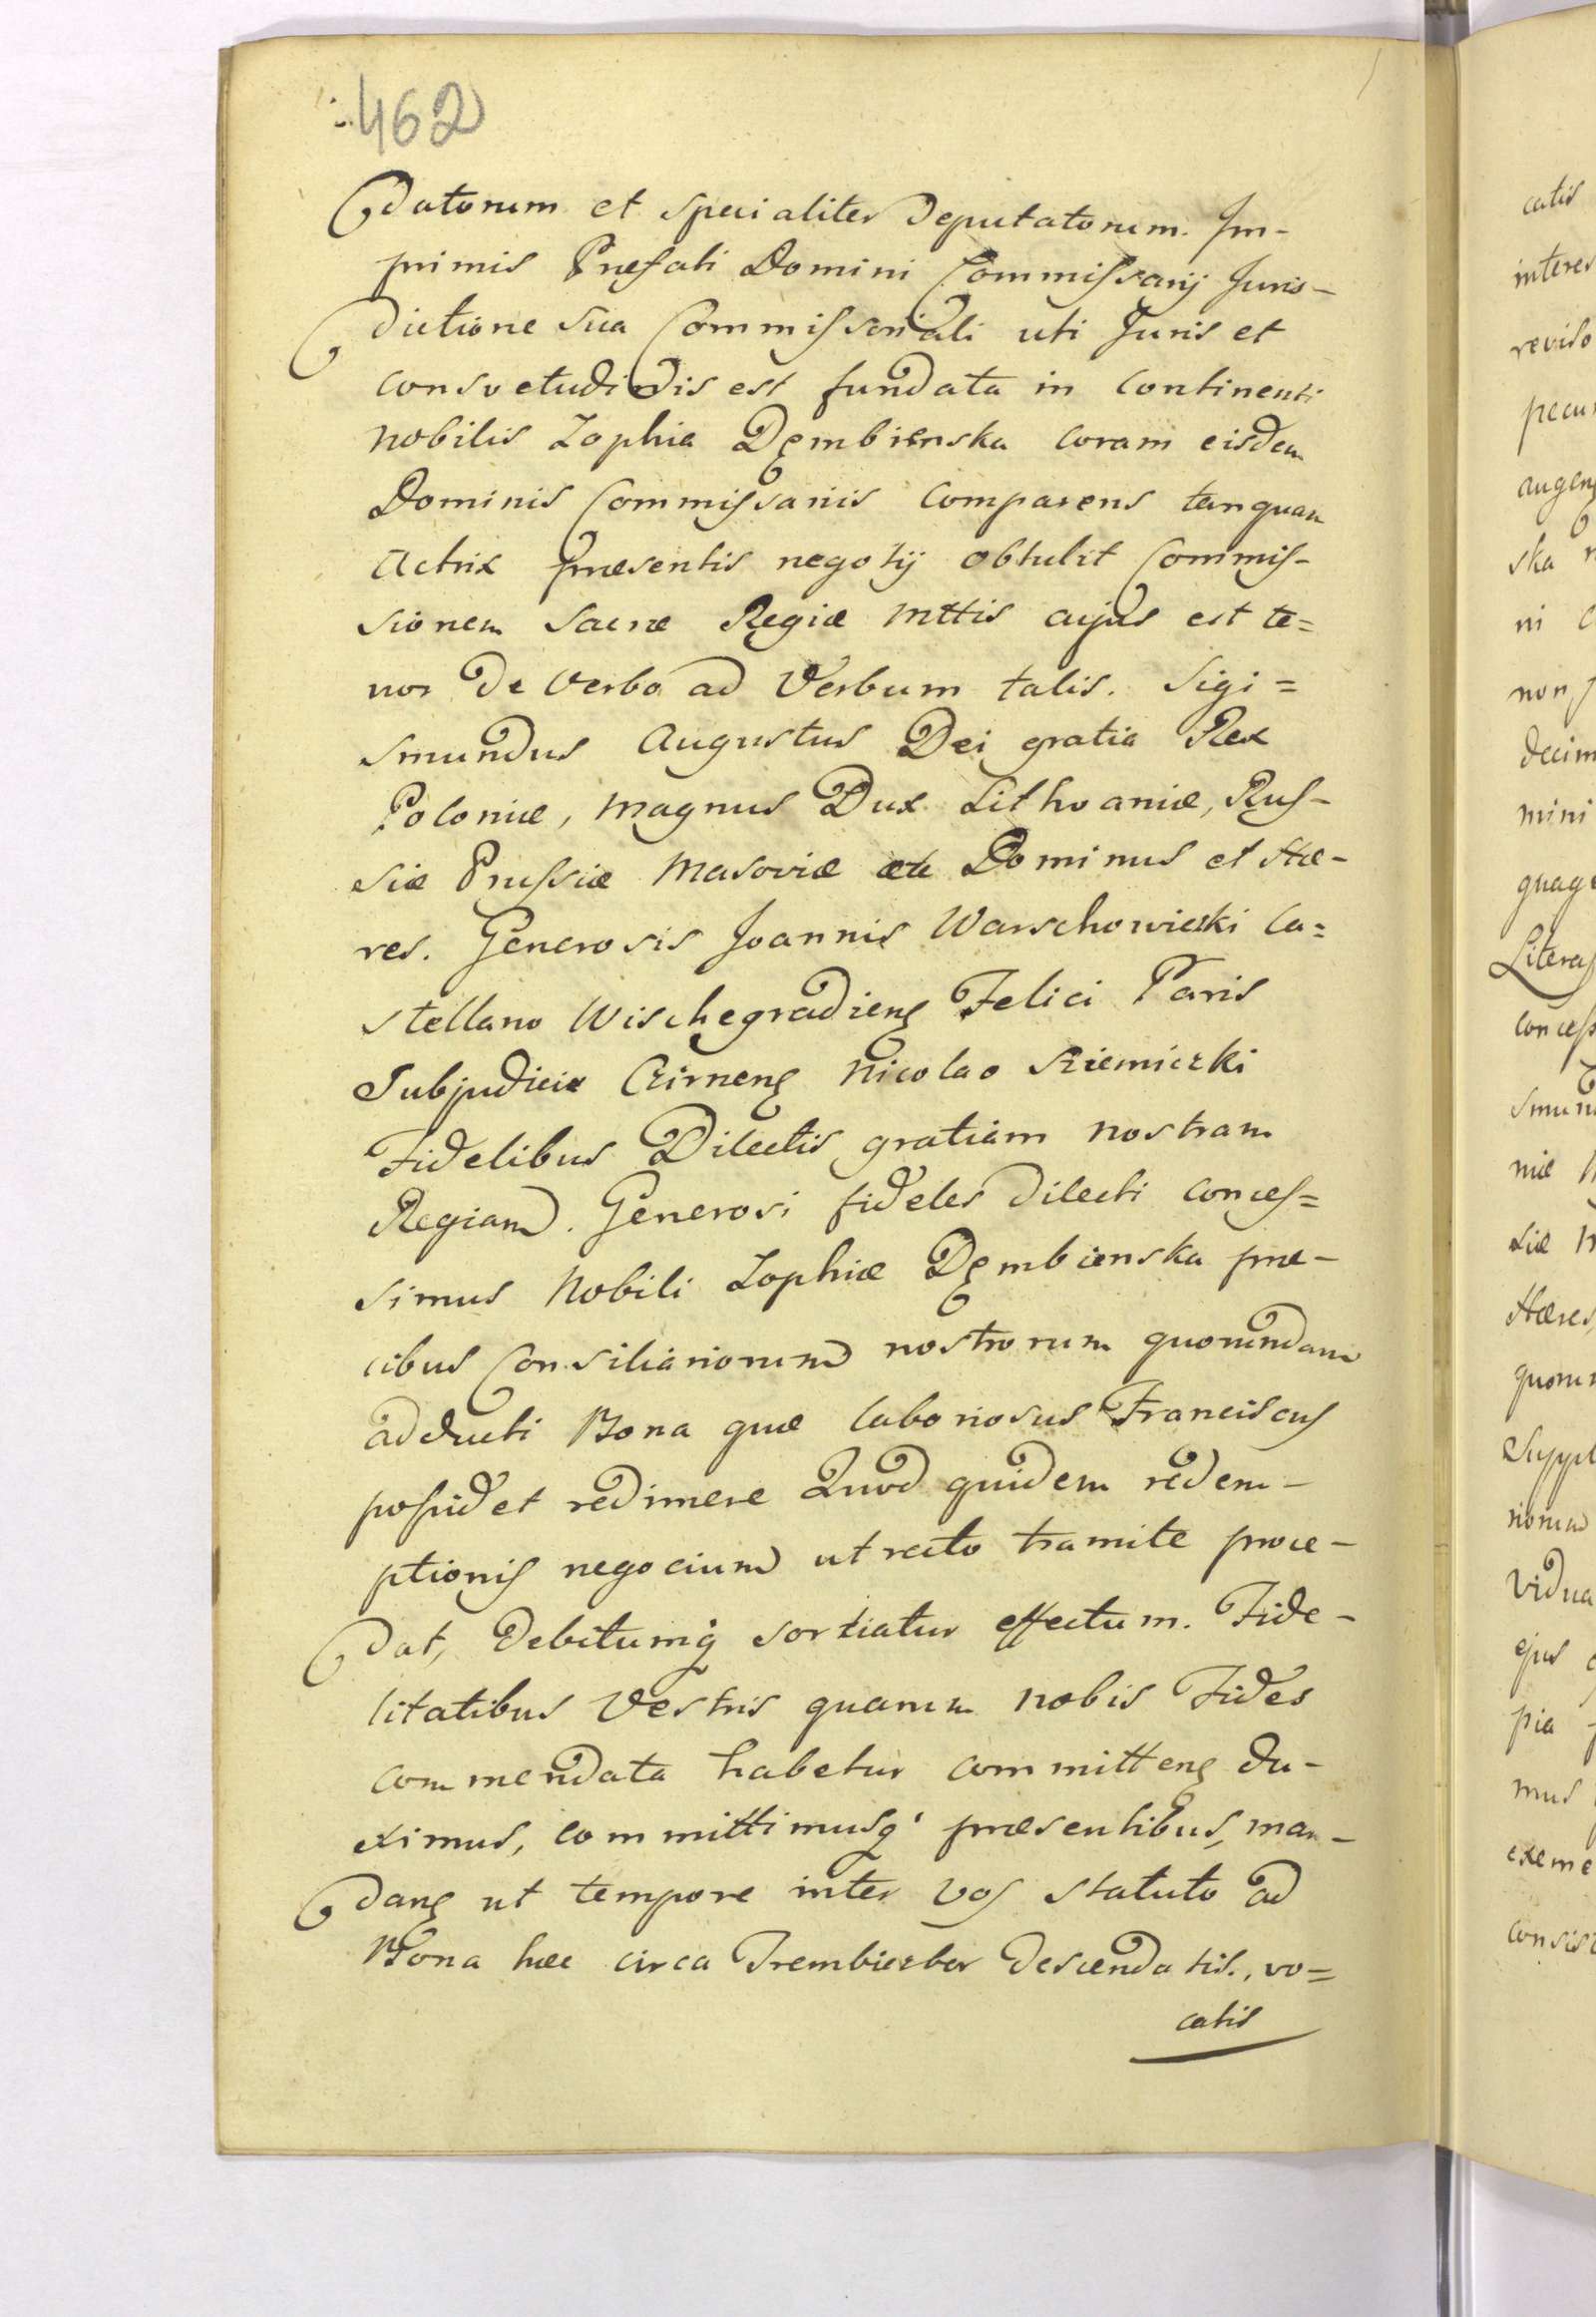 462
datorum et specialiter Deputatorum. Im-
primis Præfati Domini Commissarij Juris-
dictione sua Commissoriali uti Juris et
consvetudidis est fundata in continenti
nobilis Zophia Dembienska coram eisdem
Dominis Commissariis comparens tanquam
Actrix præsentis negotij obtulit Commis-
sionem Sacræ Regiæ Mttis cujus est te=
nor de verbo ad Verbum talis. Sigi=
smundus Augustus Dei gratia Rex
Poloniæ, magnus Dux Lithvaniæ, Rus-
siæ Prussiæ Masoviæ etc Dominus et Hæ-
res. Generosis Joannis Warschowieski Ca=
stellano Wischegradiens Felici Paris
Subjudicie Czirnens Nicolao Niemiczki
Fidelibus Dilectis gratiam nostram
Regiam. Generosi fideles dilecti conces=
simus Nobili Zophiæ Dembienska præ-
cibus Consiliariorum nostrorum quorundam
adducti Bona quæ laboriosus Franciscus
possidet redimere Quod quidem redem-
ptionis negocium ut recto tramite proce-
dat, debitumq sortiatur effectum. Fide-
litatibus Vestris quarum nobis Fides
commendata habetur committens du-
ximus, committimusq præsentibus, man-
dans ut tempore inter vos statuto ad
Bona hæc circa Trembiczbor descendatis, vo=
catis
catis
interes
reviso
pecun
augen
ska
ni
non
decim
mini
quag
Literas
concess
smun
niæ
siæ
Hæres,
quorun
Suppl
riorum
vidua
ejus
pia
mus
exeme
consist